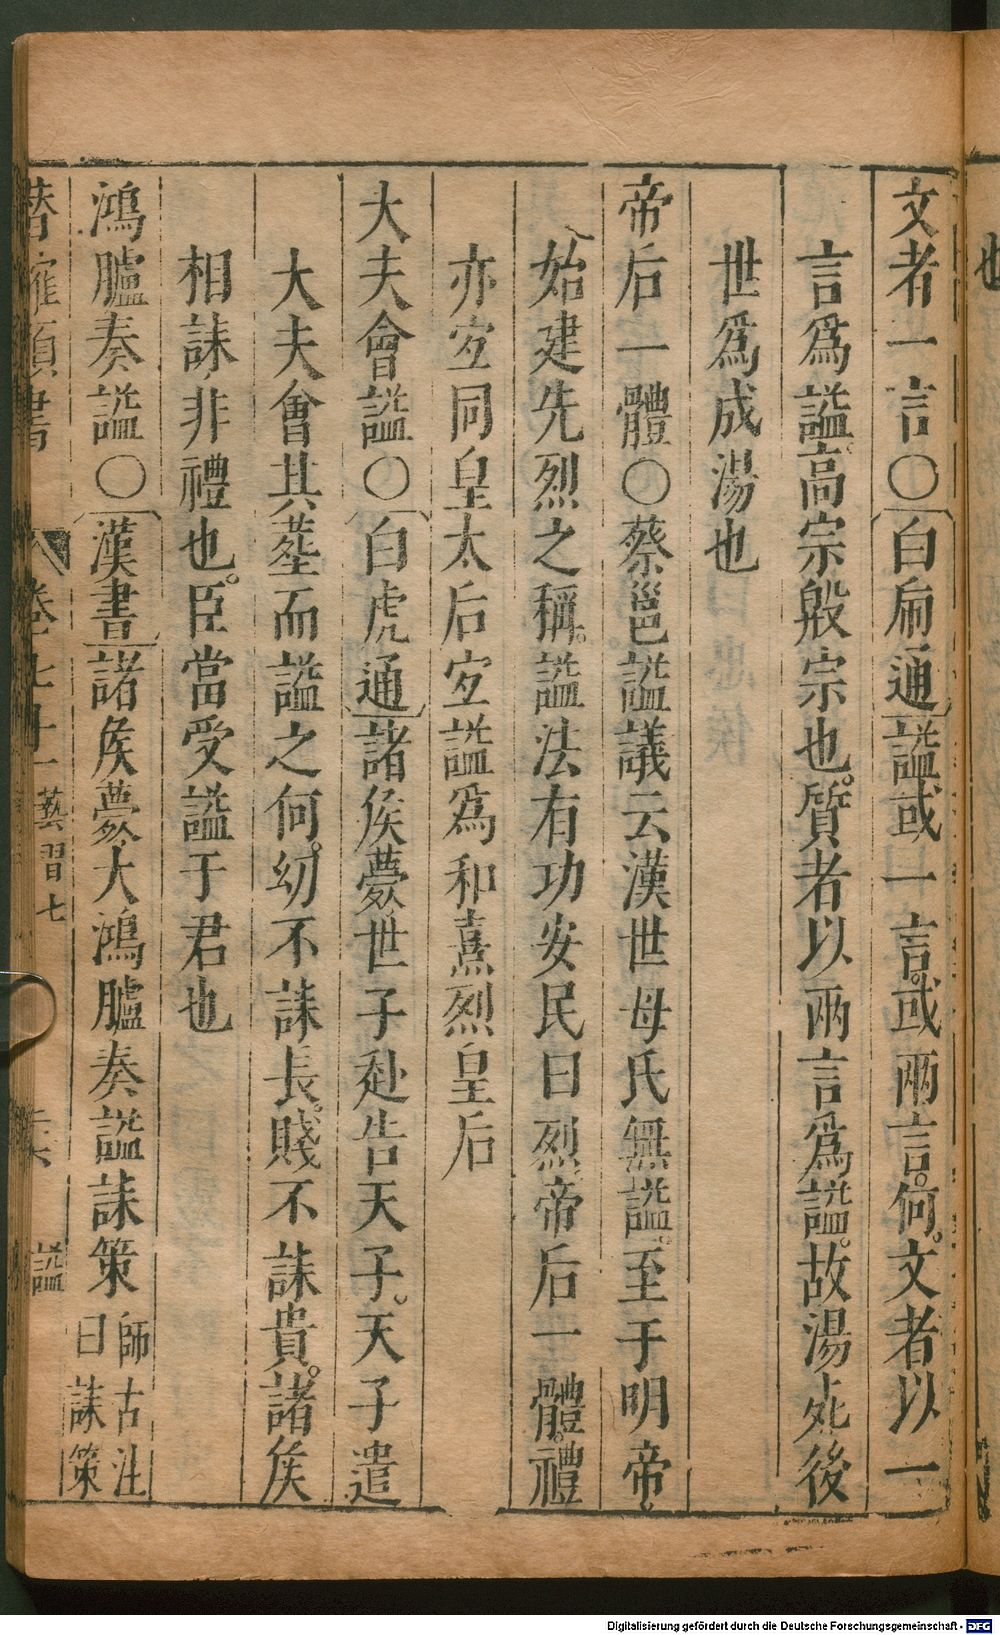 文者一言〇白虎通謚或一言或兩言何文者以一
言爲謚高宗殷宗也質者以兩言爲謚故湯死後
世爲成湯也
帝后一體〇蔡邕謚議云漢世母氏無謚至于明帝
始建先烈之稱謚法有功安民曰烈帝后一體禮
亦宜同皇太后宜謚爲和熹烈皇后
大夫會謚〇白虎通諸侯薨世子赴告天子天子遣
大夫會其葬而謚之何幼不誄長賤不誄貴諸侯
相誄非禮也臣當受謚于君也
鴻臚奏謚〇漢書諸侯薨大鴻臚奏謚誄策師古注
曰誄策
潛確類書
卷七十一 藝習七
謚
也
Digitalisierung gefördert durch die Deutsche Forschungsgemeinschaft - DFG